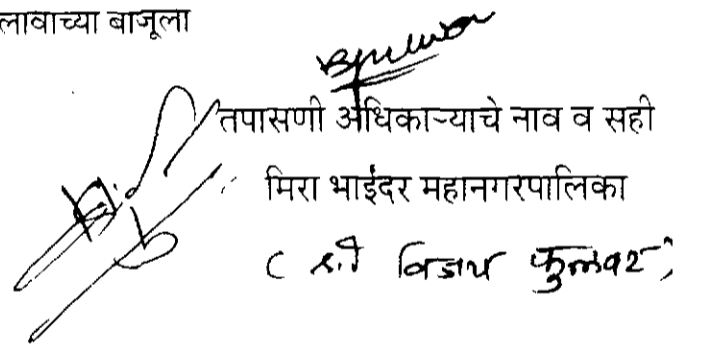 लावाच्या बाजूला
तपासणी अधिकाऱ्याचे नाव व सही
मिरा भाईंदर महानगरपालिका
( श्री विजय